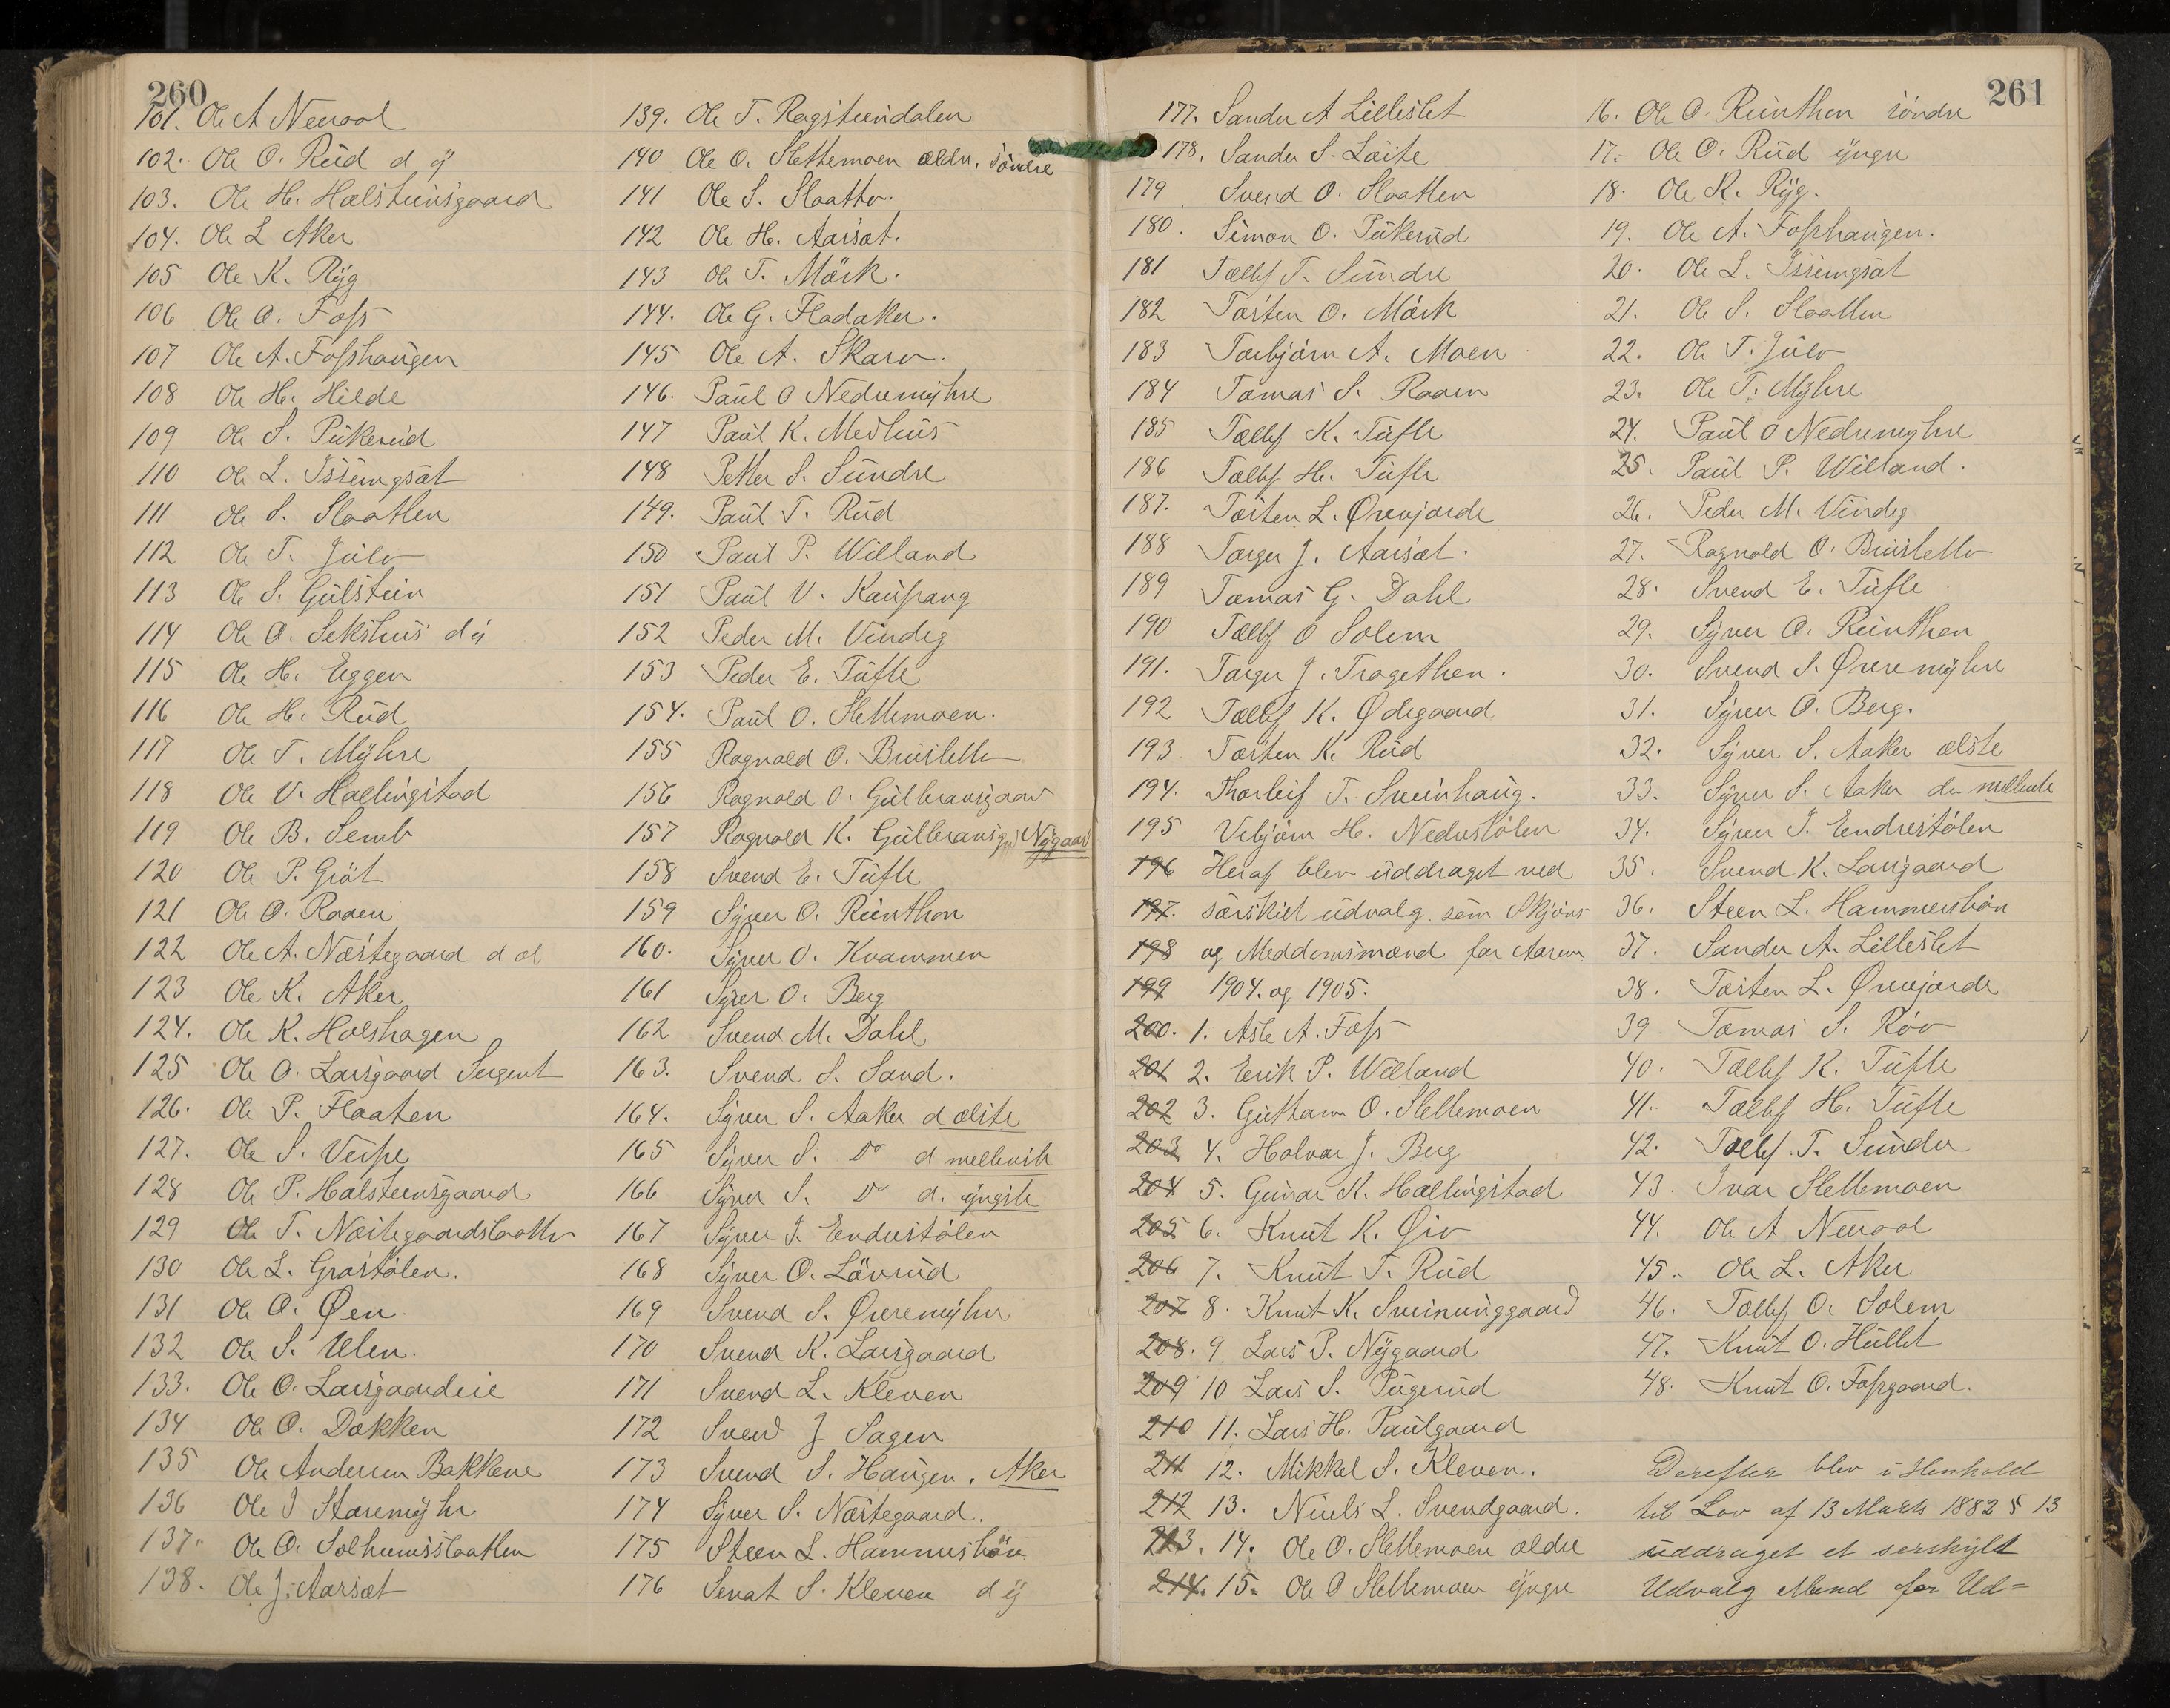 260
101. Ole A Neeraal
102. Ole O. Rud d y
103. Ole H. Halsteinsgaard
104. Ole L Aker
105 Ole K. Ryg
106 Ole O. Foss
107 Ole A. Fosshaugen
108 Ole H. Hilde
109 Ole S. Pukerud
110 Ole L. Issemgsat
111 Ole S. Slaatten
112 Ole T. Julv
113 Ole S. Gulstein
114 Ole O. Sekshus d y
115 Ole H. Eggen
116 Ole H. Rud
117 Ole T. Myhre
118 Ole V. Hallingstad
119 Ole B. Semb
120 Ole P. Gröt
121 Ole O. Raaen
122 Ole A. Næstegaard d æl
123 Ole K. Aker
124. Ole K. Halshagen
125 Ole O. Larsgaard Sergent
126. Ole P. Flaaten
127. Ole S. Vespe
128 Ole P. Halsteensgaard
129 Ole T. Næstegaardslaatte
130 Ole L. Grøstølen.
131 Ole O. Øen.
132 Ole S. Ulen.
133. Ole O. Larsgaardeie
134 Ole O. Dokken
135 Ole Andersen Bakkene
136 Ole I Staremyhr
137. Ole O. Solheimsslaatten
138. Ole J. Aarsæt
139. Ole T. Ragsteindalen
140 Ole O. Slettemoen ældr. söndre
141 Ole S. Slaatto.
142 Ole H. Aarsæt.
143 Ole T. Mörk.
144. Ole G. Fladaker.
145 Ole A. Skarv.
146. Paul O Nedremyhre
147 Paul K. Medhus
148 Petter S. Sundre
149. Paul T. Rud
150 Paul P. Willand
151 Paul V. Kaupang
152 Peder M. Vindeg
153 Peder E. Tufte
154. Paul O. Slettemoen.
155 Ragnald O. Brusletto
156 Ragnald O. Gulbransgaard
157 Ragnald K. Gulbransgrd Nygaard
158 Svend E. Tufte
159 Syver O. Rünthon
160. Syver O. Kvammen
161 Syver O. Berg
162 Svend M. Dahl
163. Svend S. Sand.
164. Syver S. Aaker d ælste
165 Syver S. Do d mellemste
166 Syver S. Do d. yngste
167 Syver I. Endrestølen
168 Syver O. Lövrud
169 Svend S. Øvremyhr
170 Svend K. Larsgaard
171 Svend L. Kleven
172 Svend J Sagen
173 Svend S. Haugen. Aker
174 Syver S. Næstegaard.
175 Steen L. Hammersbøn
176 Senat S. Kleven d y
261
177. Sander A Lilleslet
178. Sander S. Laite
179 Svend O. Slaatten
180. Simon O. Pukerud
181 Tollef T. Sundre
182 Torsten O. Mörk
183 Torbjörn A. Moen
184 Tomas S. Raaen
185 Tollef K. Tufte
186 Tollef H. Tufte
187. Torsten L. Øvrejorde
188 Torger J. Aarsæt.
189 Tomas G. Dahl
190 Tollef O Solem
191. Torger J. Tragethon.
192 Tollef K. Ødegaard
193 Torsten K. Rud
194. Thorleif T. Sveinhaug.
195 Vebjörn H. Nedrestølen
196 Heraf blev uddraget ved
197. særskilt udvalg som Skjöns
198 og Meddomsmænd for Aarene
199 1904. og 1905.
200. 1. Asle A. Foss
201 2. Erik P. Willand
202 3. Guttorm O. Slettemoen
203 4. Halvor J. Berg
204 5. Gunar K. Hallingstad
205 6. Knut K. Øiv
206 7. Knut T. Rud
207 8. Knut K. Sveinunggaard
208. 9 Lars P. Nygaard
209 10 Lars S. Pugerud
210 11. Lars H. Paulgaard
211 12. Mikkel S. Kleven.
212 13. Niels L. Svendgaard.
213. 14. Ole O. Slettemoen ældre
214. 15. Ole O Slettemoen yngre
16. Ole O. Rünthon söndre
17. Ole O. Rud yngre
18. Ole K. Ryg.
19. Ole A. Fosshaugen.
20. Ole L. Issemgsat
21. Ole S. Slaatten
22. Ole T. Julv
23. Ole T. Myhre
24. Paul O Nedremyhre
25. Paul P. Willand.
26. Peder M. Vindeg
27. Ragnald O. Brusletto
28. Svend E. Tufte
29. Syver O. Rünthon
30. Svend S. Øvremyhre
31. Syver O. Berg.
32. Syver S. Aaker ælste
33. Syver S. Aaker den mellemste
34. Syver I. Endrestølen
35. Svend K. Larsgaard
36. Steen L. Hammersbøn
37. Sander A. Lilleslet
38. Torsten L. Øvrejorde
39. Tomas S. Röv
40. Tollef K. Tufte
41. Tollef H. Tufte
42. Tollef T. Sundre
43. Ivar Slettemoen
44. Ole A Neeraal
45. Ole L. Aker
46. Tollef O. Solem
47. Knut O. Hullet
48. Knut O. Fossgaard.
Derefter blev i Henhold
til Lov af 13 Marts 1882 § 13
uddraget et serskyldt
Udvalg Mend for Ud=